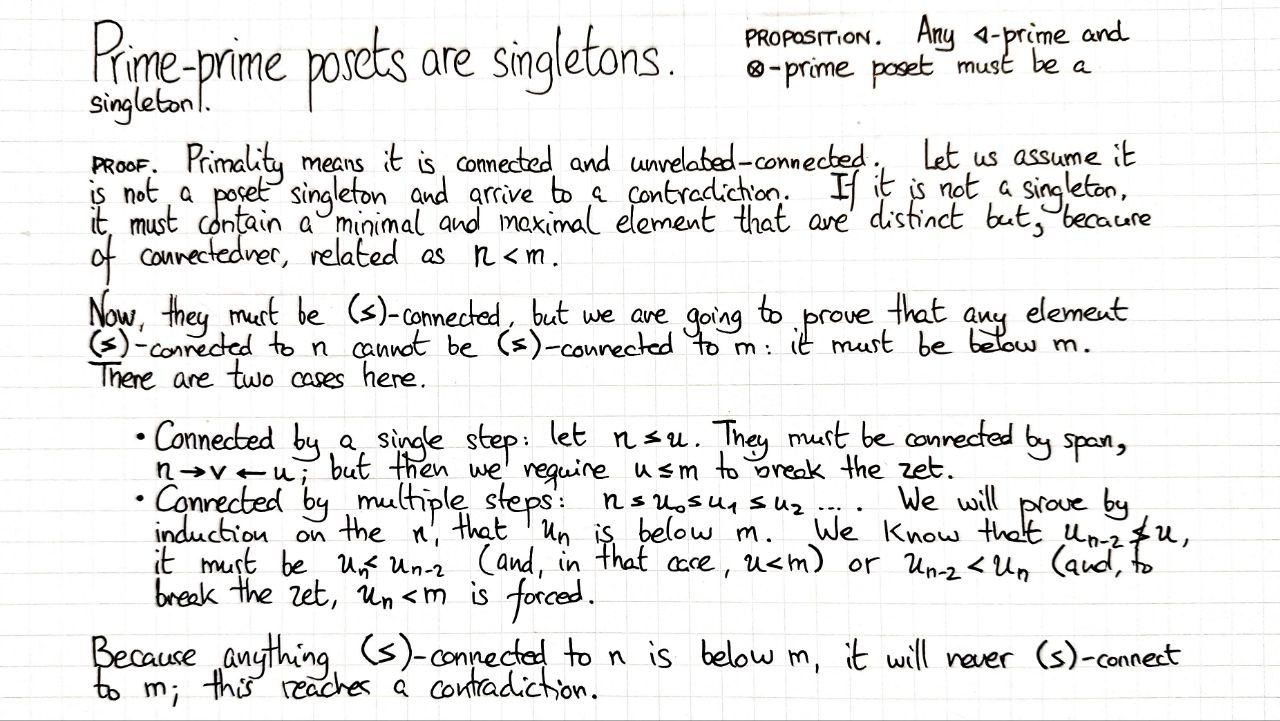 Prime-prime posets are singletons.
PROPOSITION. Any ◁-prime and
⊗-prime poset must be a
singleton.
PROOF. Primality means it is connected and unrelated-connected. Let us assume it
is not a poset singleton and arrive to a contradiction. If it is not a singleton,
it must contain a minimal and maximal element that are distinct but, because
of connectedness, related as n < m.
Now, they must be (≤)-connected, but we are going to prove that any element
(≤)-connected to n cannot be (≤)-connected to m: it must be below m.
There are two cases here.
• Connected by a single step: let n ≤ u. They must be connected by span,
n → v ← u; but then we require u ≤ m to break the zet.
• Connected by multiple steps: n ≤ u₀ ≤ u₁ ≤ u₂ .... We will prove by
induction on the n, that uₙ is below m. We know that uₙ₋₂ ≰ u,
it must be uₙ < uₙ₋₂ (and, in that case, u < m) or uₙ₋₂ < uₙ (and, to
break the zet, uₙ < m is forced.
Because anything (≤)-connected to n is below m, it will never (≤)-connect
to m; this reaches a contradiction.